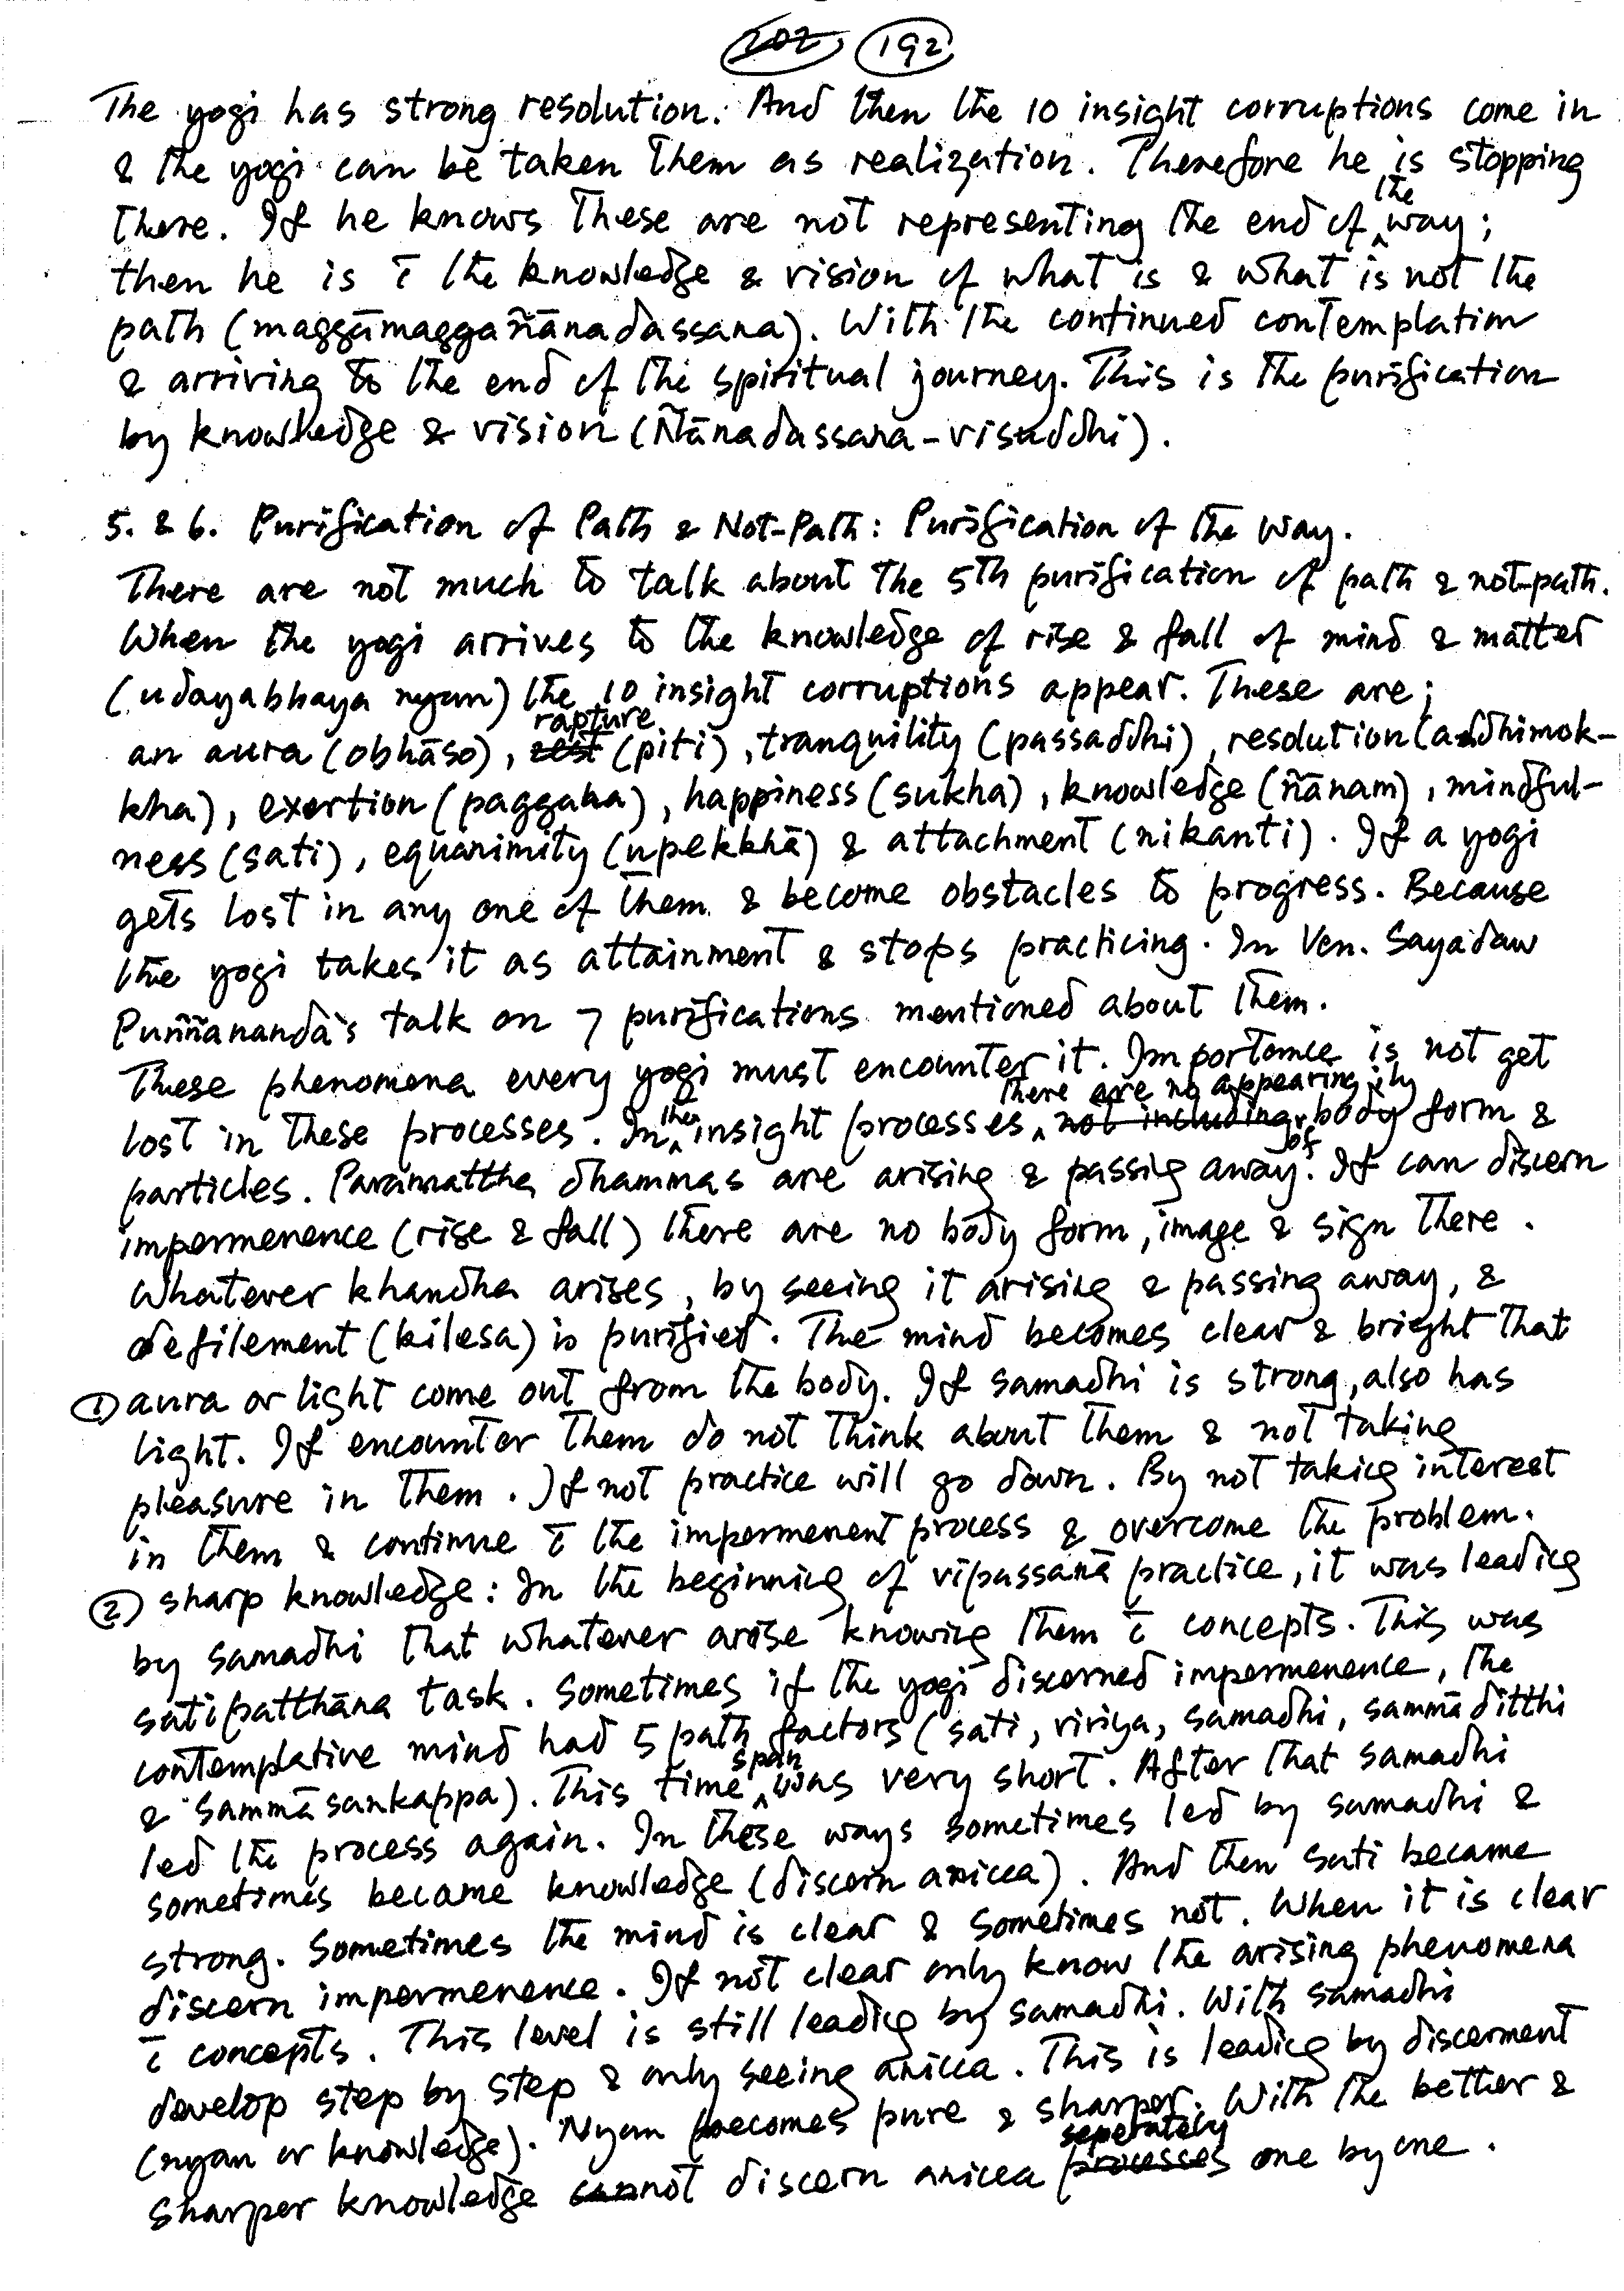 202 192
The yogi has strong resolution. And then the 10 insight corruptions come in
& the yogi can be taken them as realization. Therefore he is stopping
there. If he knows these are not representing the end of the way;
then he is c̄ the knowledge & vision of what is & what is not the
path (maggāmaggañānadassana). With the continued contemplation
& arriving to the end of the spiritual journey. This is the purification
by knowledge & vision (Ñānadassana-visuddhi).
5. & 6. Purification of Path & Not-Path: Purification of the Way.
There are not much to talk about the 5th purification of path & not-path.
When the yogi arrives to the knowledge of rise & fall of mind & matter
(udayabhaya nyan) the 10 insight corruptions appear. These are;
an aura (obhāso), zest rapture (piti), tranquility (passaddhi), resolution (adhimok-
kha), exertion (paggaha), happiness (sukha), knowledge (ñānam), mindful-
ness (sati), equanimity (upekkhā) & attachment (nikanti). If a yogi
gets lost in any one of them & become obstacles to progress. Because
the yogi takes it as attainment & stops practicing. In Ven. Sayadaw
Puññananda's talk on 7 purifications mentioned about them.
These phenomena every yogi must encounter it. Importance is not get
lost in these processes. In the insight processes, not including there are no appearing by body form &
particles. Paramattha dhammas are arising & passing away. If can discern
impermenence (rise & fall) there are no body form, image & sign there.
Whatever khandha arises, by seeing it arising & passing away, &
defilement (kilesa) is purified. The mind becomes clear & bright that
① aura or light come out from the body. If samadhi is strong, also has
light. If encounter them do not think about them & not taking
pleasure in them. If not practice will go down. By not taking interest
in them & continue c̄ the impermenent process & overcome the problem.
② sharp knowledge: In the beginning of vipassanā practice, it was leading
by samadhi that whatever arise knowing them c̄ concepts. This was
satipatthāna task. Sometimes if the yogi discerned impermenence, the
contemplative mind had 5 path factors (sati, viriya, samadhi, sammā ditthi
& sammā sankappa). This time span was very short. After that samadhi
led the process again. In these ways sometimes led by samadhi &
sometimes became knowledge (discern anicca). And then sati became
strong. Sometimes the mind is clear & sometimes not. When it is clear
discern impermenence. If not clear only know the arising phenomena
c̄ concepts. This level is still leading by samadhi. With samadhi
develop step by step & only seeing anicca. This is leading by discernment
(nyan or knowledge). Nyan becomes pure & sharper. With the better &
sharper knowledge cannot discern anicca processes seperately one by one.